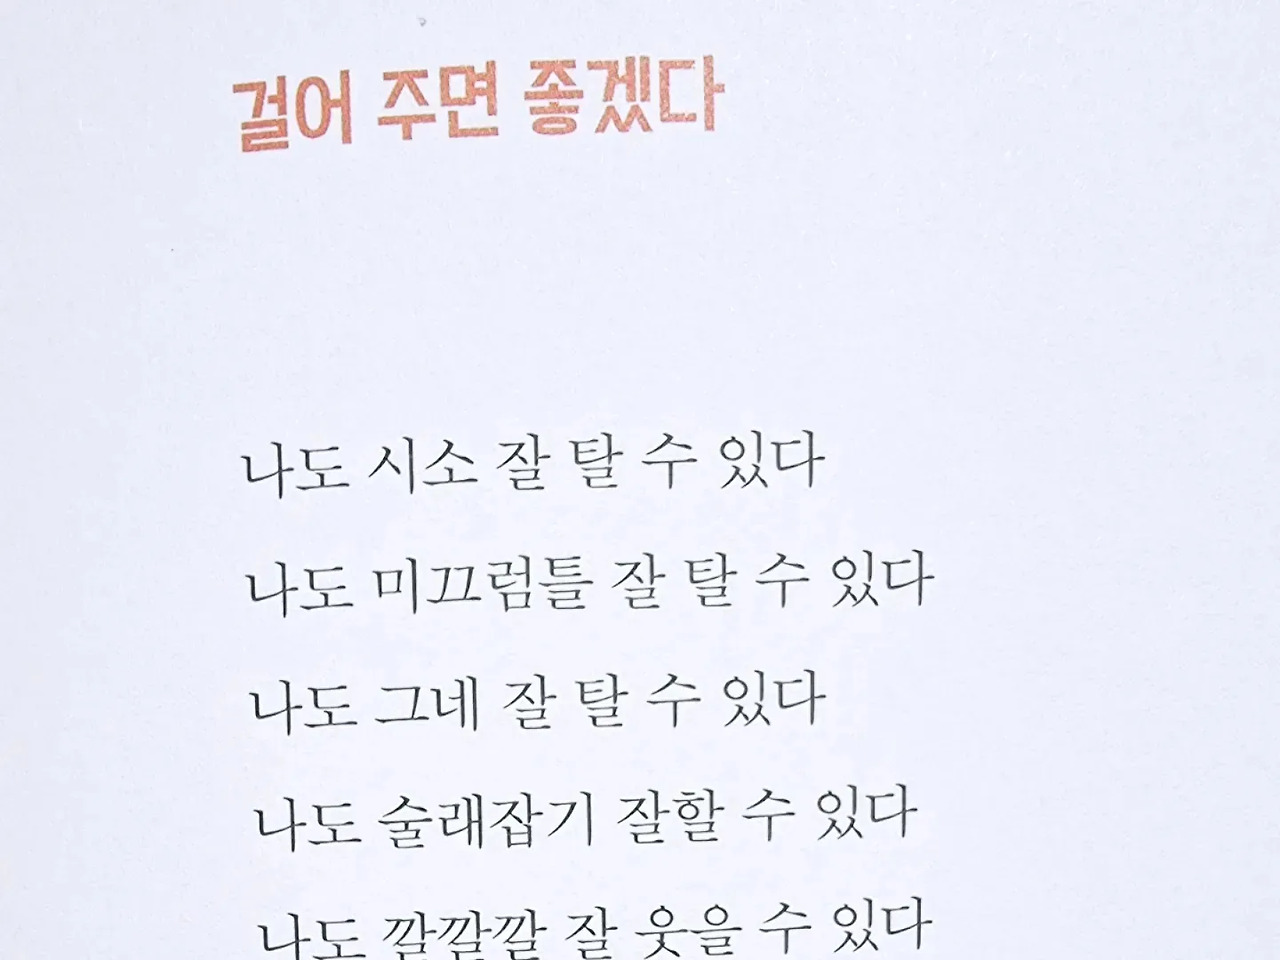 걸어 주면 좋겠다
나도 시소 잘 탈 수 있다
나도 미끄럼틀 잘 탈 수 있다
나도 그네 잘 탈 수 있다
나도 술래잡기 잘할 수 있다
나도 깔깔깔 잘 웃을 수 있다